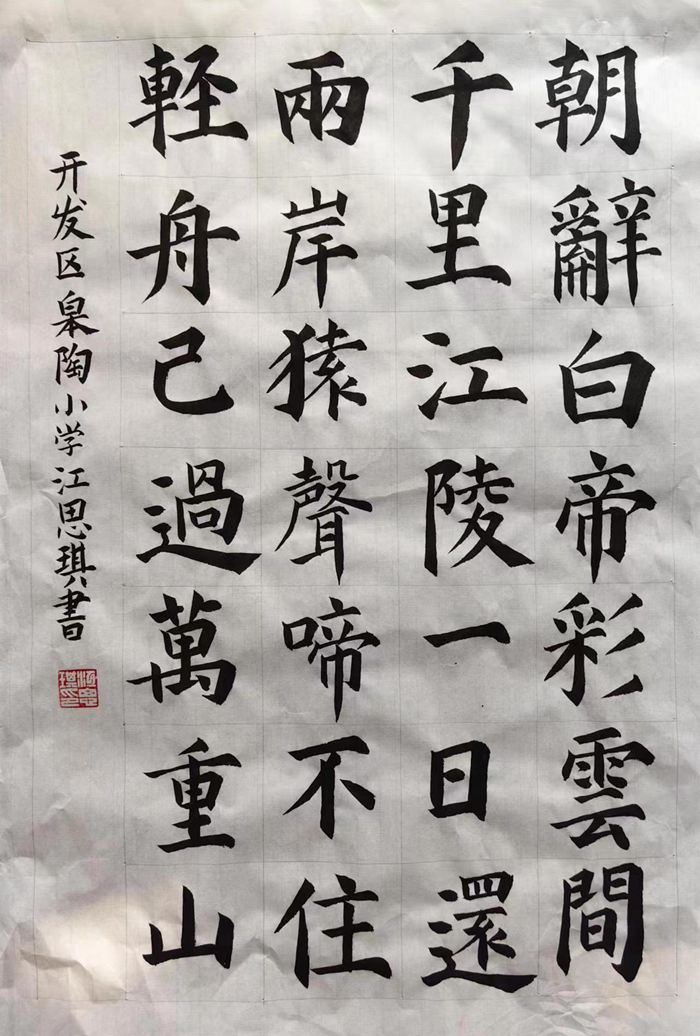 朝辭白帝彩雲間
千里江陵一日還
兩岸猿聲啼不住
軽舟已過萬重山
开发区皋陶小学江思琪書